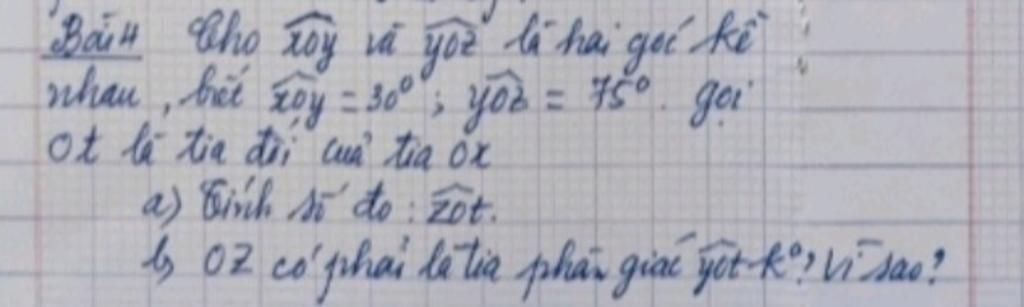 Bài 4 Cho xoy và yoz là hai góc kề
nhau, biết xoy = 30°; yoz = 75°. gọi
ot là tia đối của tia ox
a) Tính số đo: zot.
b, OZ có phải là tia phân giác yot k°? Vì sao?